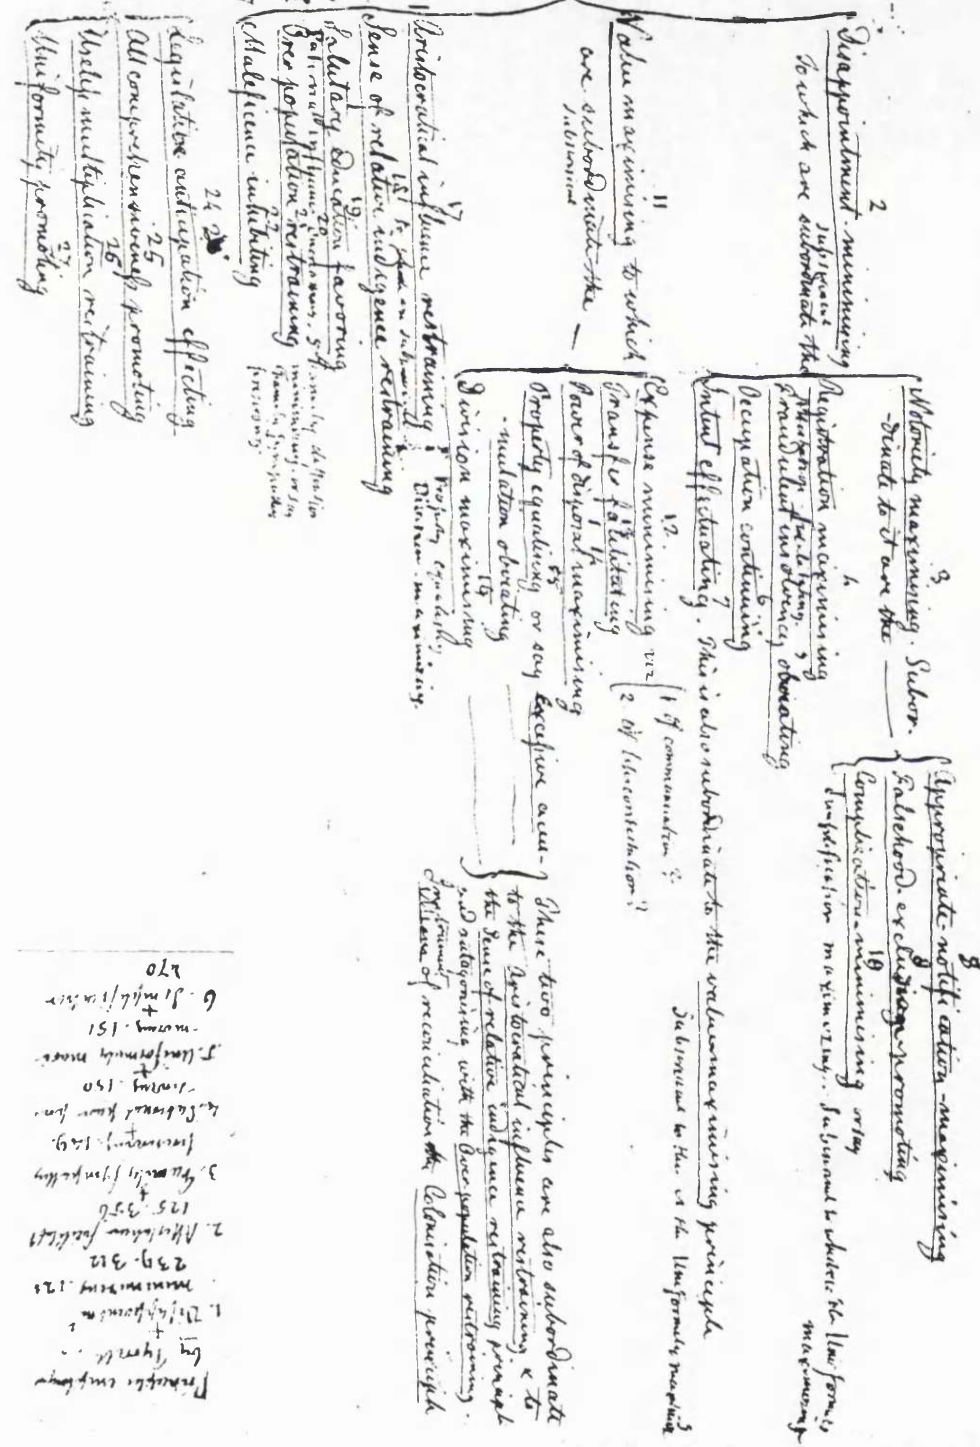 2
Disappointment-minimising
subservient
To which are subordinate the
3
Notoriety maximising. Subor-
-dinate to it are the
8
Appropriate-notification-maximising
9
Falsehood-excluding promoting
10
Complication-minimising or say
Simplification maximizing. Subservient to which is the Uniformity
maximizing
4
Registration maximising
5
Fraudulent insolvency obviating
6
Occupation continuing
7
Intent effectuating. This is also subordinate to the value maximising principle
Subservient to this is the Uniformity maxim
11
Value maximising to which
are subordinate the
subservient
12
Expense minimising viz
1 of communication?
2. of
13
Transfer facilitating
14
Power of disposal maximising
15
Property equalising or say Excessive accu-
-mulation obviating
16
Division maximising
Property equalising
Division-maximizing.
These two principles are also subordinate
to the Aristocratical influence restraining & to
the Sense of relative indigence restraining principle
and antagonising with the Over population restraining.
Instrument
of reconciliation the Colonisation principle
17
Aristocratical influence restraining
18
Sense of relative indigence restraining
19
Salutary education favoring
20
21
Over population restraining
22
Maleficence inhibiting
family
minimising, or say
family sympathy
24
Legislative anticipation effecting
25
All comprehensiveness promoting
26
Useless multiplication restraining
27
Uniformity promoting
Principles employed
by Tyrrell
1. Disappointm
minimising. 121
239. 312
2. facilitat
125. 356
3. Family sympathy
149.
4.
150
5. Uniformity maxi-
-mizing. 151
6. Simplification
270